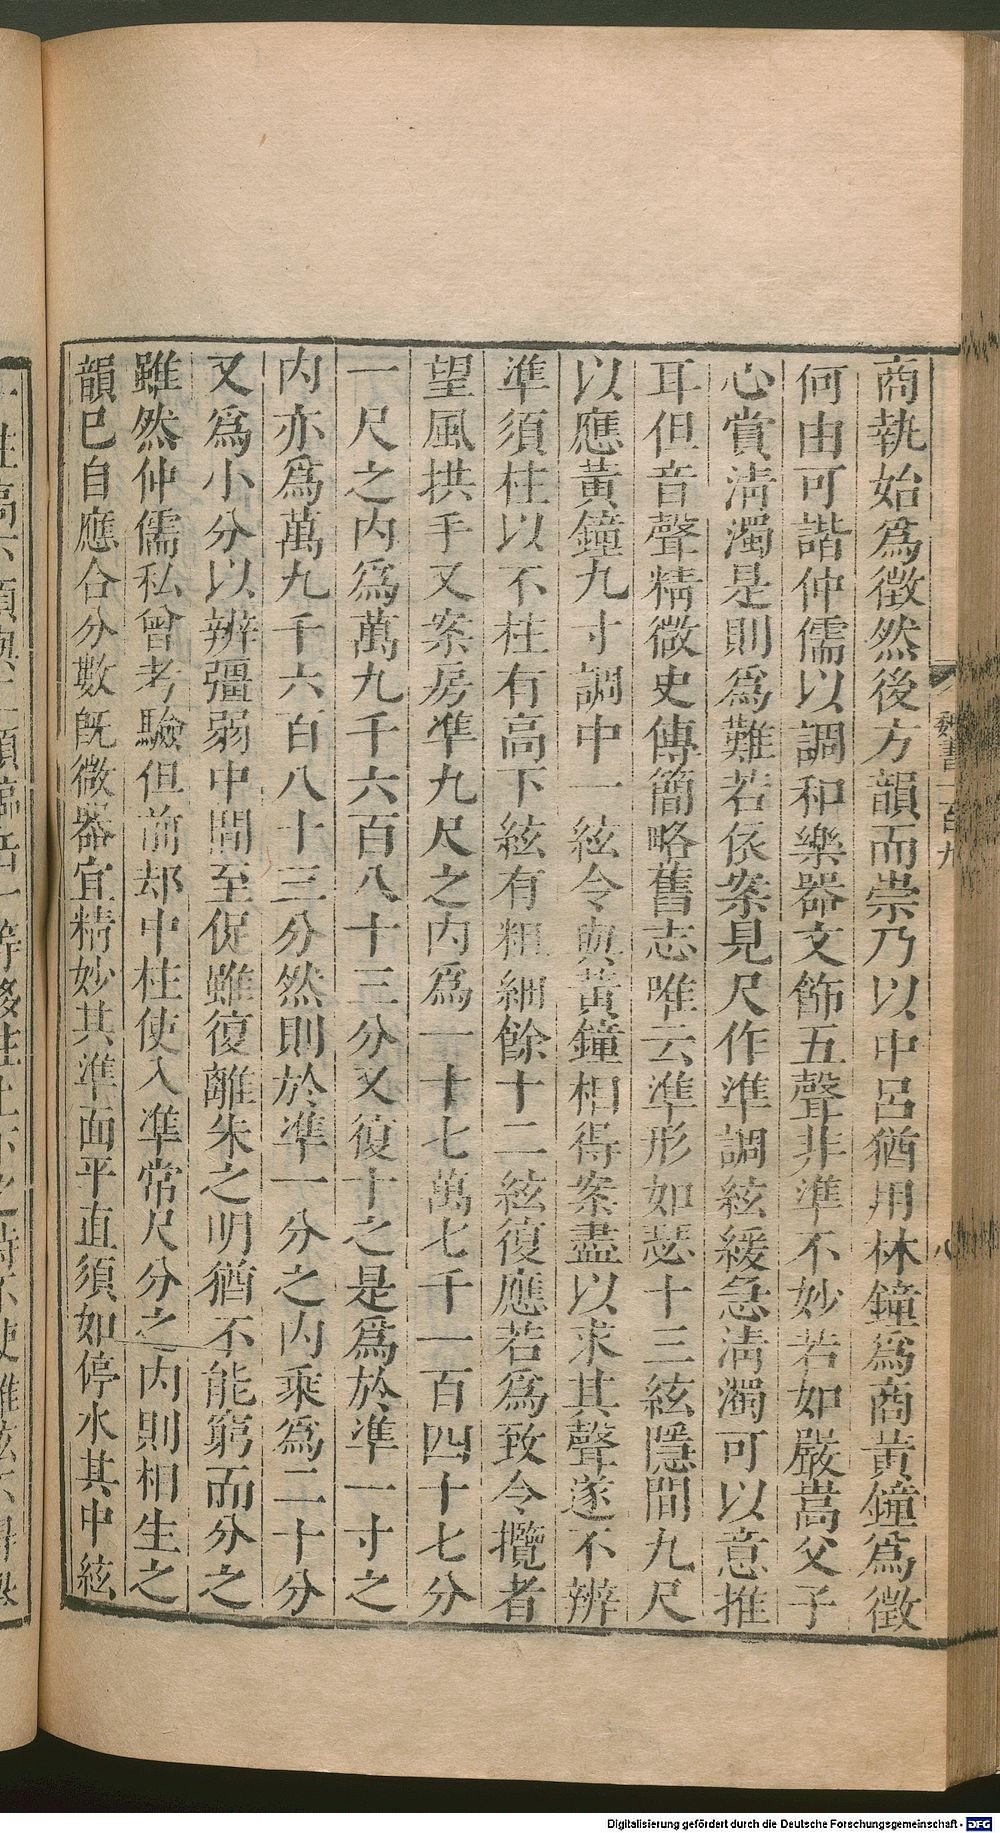 商執始爲徴然後方韻而崇乃以中呂猶用林鐘爲商黃鐘爲徴
何由可諧仲儒以調和樂器文飾五聲非準不妙若如嚴嵩父子
心賞淸濁是則爲難若依案見尺作準調絃緩急淸濁可以意推
耳但音聲精微史傳簡略舊志唯云準形如瑟十三絃隱間九尺
以應黃鐘九寸調中一絃令與黃鐘相得案盡以求其聲遂不辨
準須柱以不柱有高下絃有粗細餘十二絃復應若爲致令攬者
望風拱手又案房準九尺之內爲一十七萬七千一百四十七分
一尺之內爲萬九千六百八十三分又復十之是爲於準一寸之
內亦爲萬九千六百八十三分然則於準一分之內乘爲二十分
又爲小分以辨彊弱中間至促雖復離朱之明猶不能窮而分之
雖然仲儒私曾考驗但前却中柱使入準常尺分之內則相生之
韻已自應合分數旣微器宜精妙其準面平直須如停水其中絃
魏書一百九
Digitalisierung gefördert durch die Deutsche Forschungsgemeinschaft - DFG